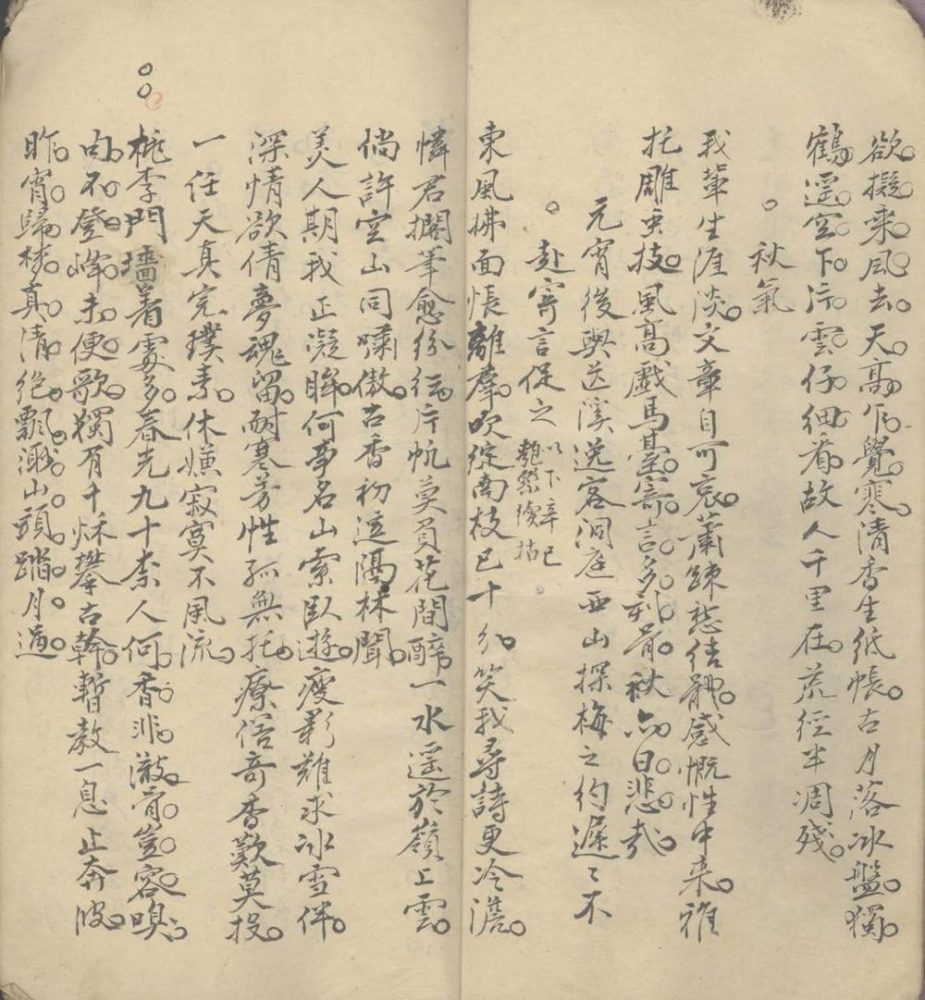 欲擬乘風去。天高乍覺寒。清香生紙帳。古月落冰盤。獨
鶴遥空下。污雲仔細看。故人千里在。荒徑半凋殘。
秋氣
我輩生涯淡。文章自可哀。蕭疎愁结。感慨性中来。雅
托雕虫技。風高戲馬臺。寄言多利骨。秋亦日悲哉。
元宵後與送溪逸客洞庭西山探梅之約遲〻不
赴寄言促之 以下辛巳
東風拂面悵離羣。吹綻南枝已十分。笑我尋詩更冷澹。
憐君擱筆愈纷纭。片帆莫負花間醉。一水遥於嶺上雲。
倘許空山同嘯傲。古香初逗隔林聞。
美人期我正凝眸。何事名山索臥遊。瘦影難求冰雪伴。
深情欲倩夢魂留。耐寒芳性孤無托。療俗奇香歎莫投。
一任天真完璞素。休嫌寂寞不風流。
桃李門墻着處多。春光九十柰人何。香非澈骨豈容嗅。
句不登峰未便歌。獨有千秋攀古幹。暫教一息止奔波。
昨宵歸夢真清绝。飄渺山頭踏月過。